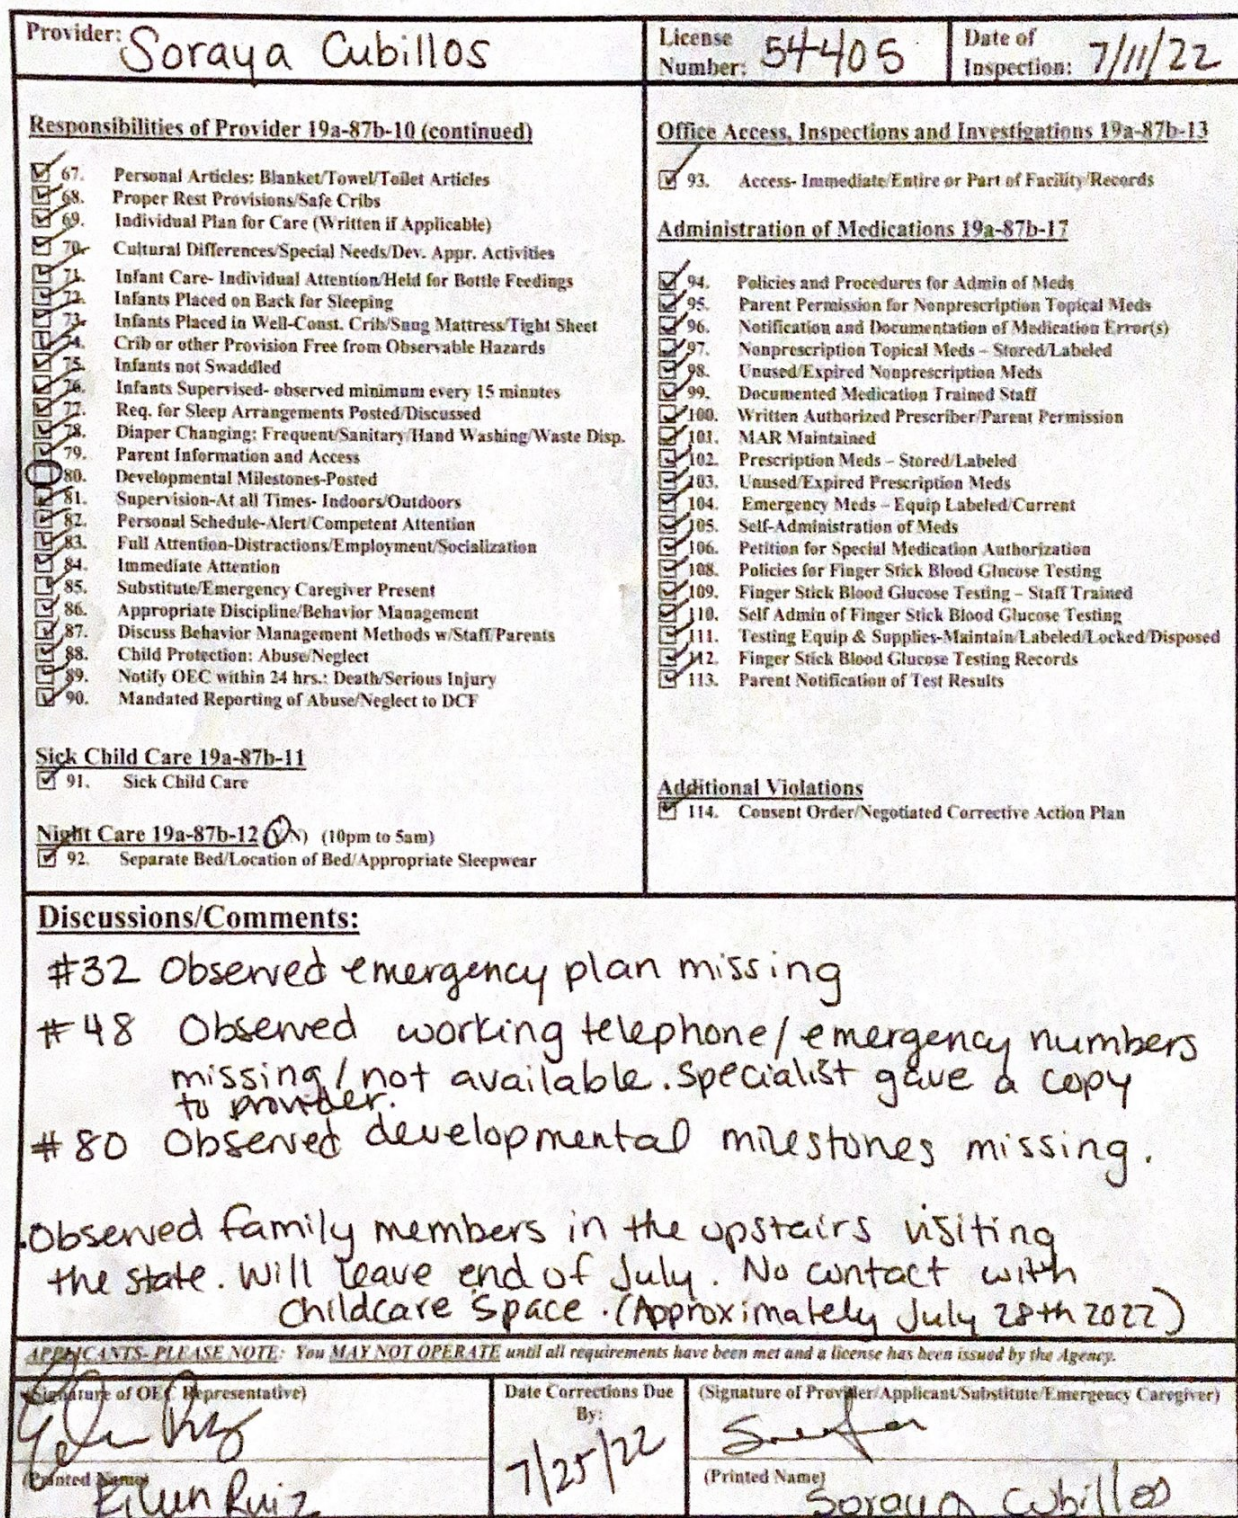 Provider: Soraya Cubillos
License Number: 54405
Date of Inspection: 7/11/22
Responsibilities of Provider 19a-87b-10 (continued)
67. Personal Articles: Blanket/Towel/Toilet Articles
68. Proper Rest Provisions/Safe Cribs
69. Individual Plan for Care (Written if Applicable)
70. Cultural Differences/Special Needs/Dev. Appr. Activities
71. Infant Care- Individual Attention/Held for Bottle Feedings
72. Infants Placed on Back for Sleeping
73. Infants Placed in Well-Const. Crib/Snug Mattress/Tight Sheet
74. Crib or other Provision Free from Observable Hazards
75. Infants not Swaddled
76. Infants Supervised- observed minimum every 15 minutes
77. Req. for Sleep Arrangements Posted/Discussed
78. Diaper Changing: Frequent/Sanitary/Hand Washing/Waste Disp.
79. Parent Information and Access
80. Developmental Milestones-Posted
81. Supervision-At all Times- Indoors/Outdoors
82. Personal Schedule-Alert/Competent Attention
83. Full Attention-Distractions/Employment/Socialization
84. Immediate Attention
85. Substitute/Emergency Caregiver Present
86. Appropriate Discipline/Behavior Management
87. Discuss Behavior Management Methods w/Staff/Parents
88. Child Protection: Abuse/Neglect
89. Notify OEC within 24 hrs.: Death/Serious Injury
90. Mandated Reporting of Abuse/Neglect to DCF
Sick Child Care 19a-87b-11
91. Sick Child Care
Night Care 19a-87b-12 (Y/N) (10pm to 5am)
92. Separate Bed/Location of Bed/Appropriate Sleepwear
Office Access, Inspections and Investigations 19a-87b-13
93. Access- Immediate/Entire or Part of Facility/Records
Administration of Medications 19a-87b-17
94. Policies and Procedures for Admin of Meds
95. Parent Permission for Nonprescription Topical Meds
96. Notification and Documentation of Medication Error(s)
97. Nonprescription Topical Meds – Stored/Labeled
98. Unused/Expired Nonprescription Meds
99. Documented Medication Trained Staff
100. Written Authorized Prescriber/Parent Permission
101. MAR Maintained
102. Prescription Meds – Stored/Labeled
103. Unused/Expired Prescription Meds
104. Emergency Meds – Equip Labeled/Current
105. Self-Administration of Meds
106. Petition for Special Medication Authorization
108. Policies for Finger Stick Blood Glucose Testing
109. Finger Stick Blood Glucose Testing – Staff Trained
110. Self Admin of Finger Stick Blood Glucose Testing
111. Testing Equip & Supplies-Maintain/Labeled/Locked/Disposed
112. Finger Stick Blood Glucose Testing Records
113. Parent Notification of Test Results
Additional Violations
114. Consent Order/Negotiated Corrective Action Plan
Discussions/Comments:
#32 Observed emergency plan missing
#48 Observed working telephone/emergency numbers
missing/not available. Specialist gave a copy
to provider.
#80 Observed developmental milestones missing.
.Observed family members in the upstairs visiting
the state. Will leave end of July. No contact with
childcare space. (Approximately July 28th 2022)
APPLICANTS- PLEASE NOTE: You MAY NOT OPERATE until all requirements have been met and a license has been issued by the Agency.
(Signature of OEC Representative)
(Printed Name)
Eilun Ruiz
Date Corrections Due
By:
7/25/22
(Signature of Provider/Applicant/Substitute/Emergency Caregiver)
(Printed Name)
Soraya Cubillos